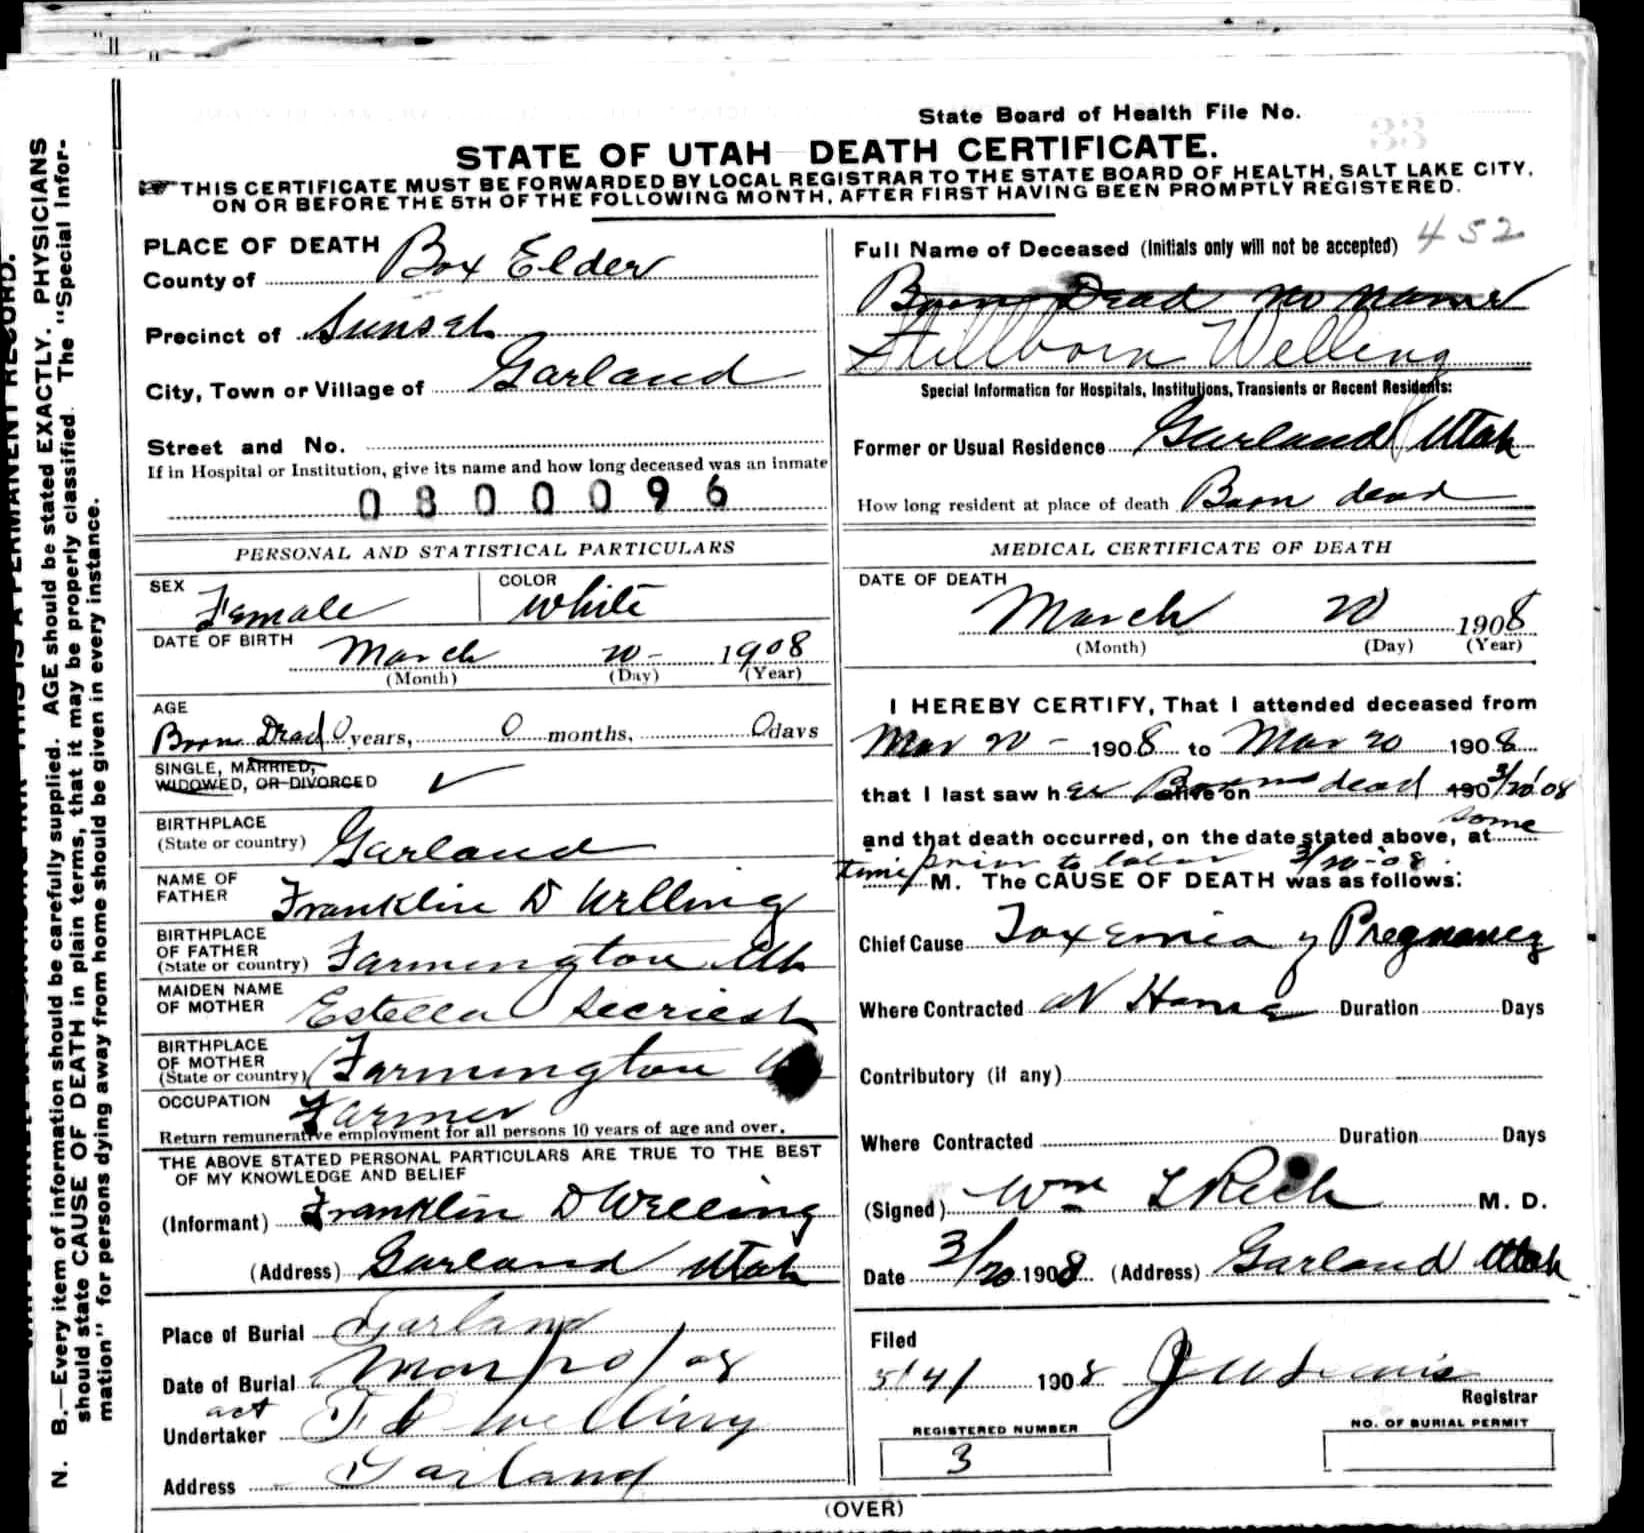 State Board of Health File No.
33
STATE OF UTAH DEATH CERTIFICATE.
THIS CERTIFICATE MUST BE FORWARDED BY LOCAL REGISTRAR TO THE STATE BOARD OF HEALTH, SALT LAKE CITY,
ON OR BEFORE THE 5TH OF THE FOLLOWING MONTH, AFTER FIRST HAVING BEEN PROMPTLY REGISTERED.
N. B.—Every item of information should be carefully supplied. AGE should be stated EXACTLY. PHYSICIANS
should state CAUSE OF DEATH in plain terms, that it may be properly classified. The "Special Infor-
mation" for persons dying away from home should be given in every instance.
PLACE OF DEATH
County of Box Elder
Precinct of Sunset
City, Town or Village of Garland
Street and No.
If in Hospital or Institution, give its name and how long deceased was an inmate
0800096
PERSONAL AND STATISTICAL PARTICULARS
SEX Female COLOR White
DATE OF BIRTH March 20 - 1908
(Month) (Day) (Year)
AGE
Born Dead 0 years, 0 months, 0 days
SINGLE, MARRIED,
WIDOWED, OR DIVORCED ✓
BIRTHPLACE
(State or country) Garland
NAME OF
FATHER Franklin D Welling
BIRTHPLACE
OF FATHER
(State or country) Farmington Ut
MAIDEN NAME
OF MOTHER Estella Secriest
BIRTHPLACE
OF MOTHER
(State or country) Farmington
OCCUPATION Farmer
Return remunerative employment for all persons 10 years of age and over.
THE ABOVE STATED PERSONAL PARTICULARS ARE TRUE TO THE BEST
OF MY KNOWLEDGE AND BELIEF
(Informant) Franklin D Welling
(Address) Garland Utah
Place of Burial Garland
Date of Burial Mar/20/08
act
Undertaker F D Welling
Address Garland
Full Name of Deceased (Initials only will not be accepted) 452
Born Dead no name
Stillborn Welling
Special Information for Hospitals, Institutions, Transients or Recent Residents:
Former or Usual Residence Garland Utah
How long resident at place of death Born dead
MEDICAL CERTIFICATE OF DEATH
DATE OF DEATH
March 20 1908
(Month) (Day) (Year)
I HEREBY CERTIFY, That I attended deceased from
Mar 20 - 1908 to Mar 20 1908
that I last saw her Born dead alive on 190 3/20/08
and that death occurred, on the date stated above, at some
time prior to labor 3/20-08.
M. The CAUSE OF DEATH was as follows:
Chief Cause Toxemia of Pregnancy
Where Contracted at Home Duration Days
Contributory (if any)
Where Contracted Duration Days
(Signed) Wm L Rich M. D.
Date 3/20 1908 (Address) Garland Utah
Filed
5/4/ 1908 J W Lewis
Registrar
REGISTERED NUMBER
3
NO. OF BURIAL PERMIT
(OVER)